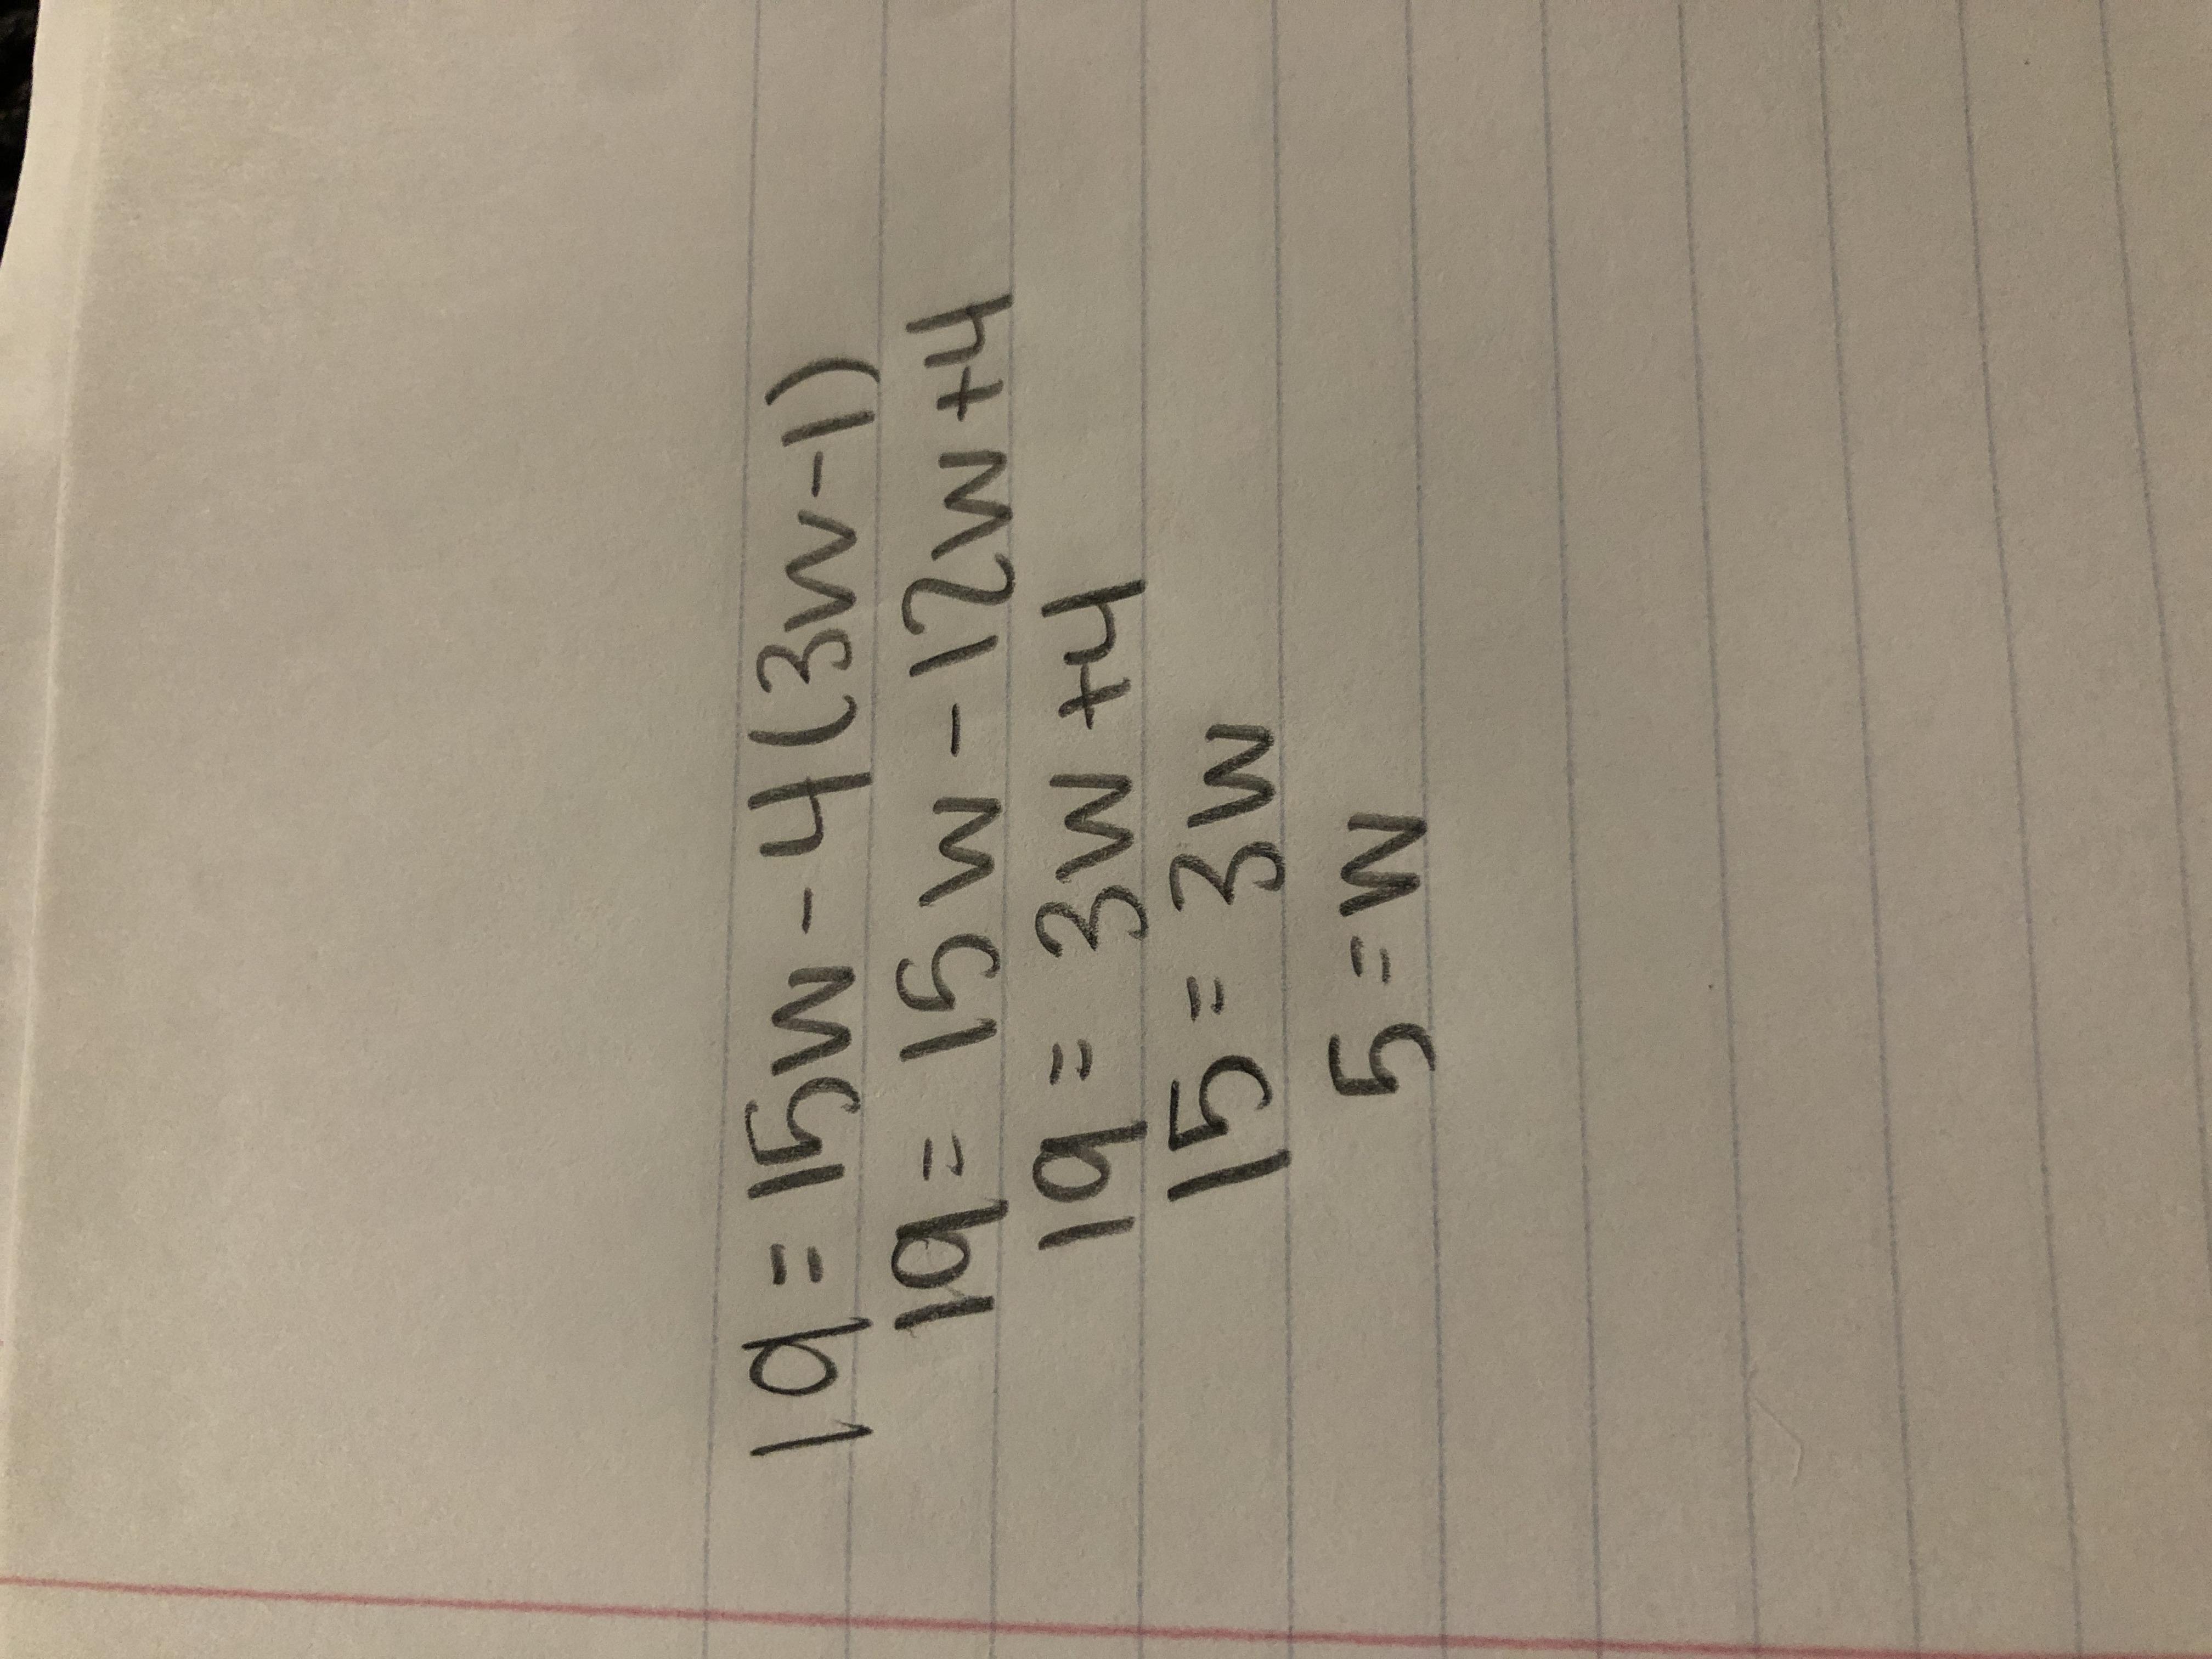 19 = 15w - 4(3w-1)
19 = 15w - 12w +4
19 = 3w +4
15 = 3w
5 = w